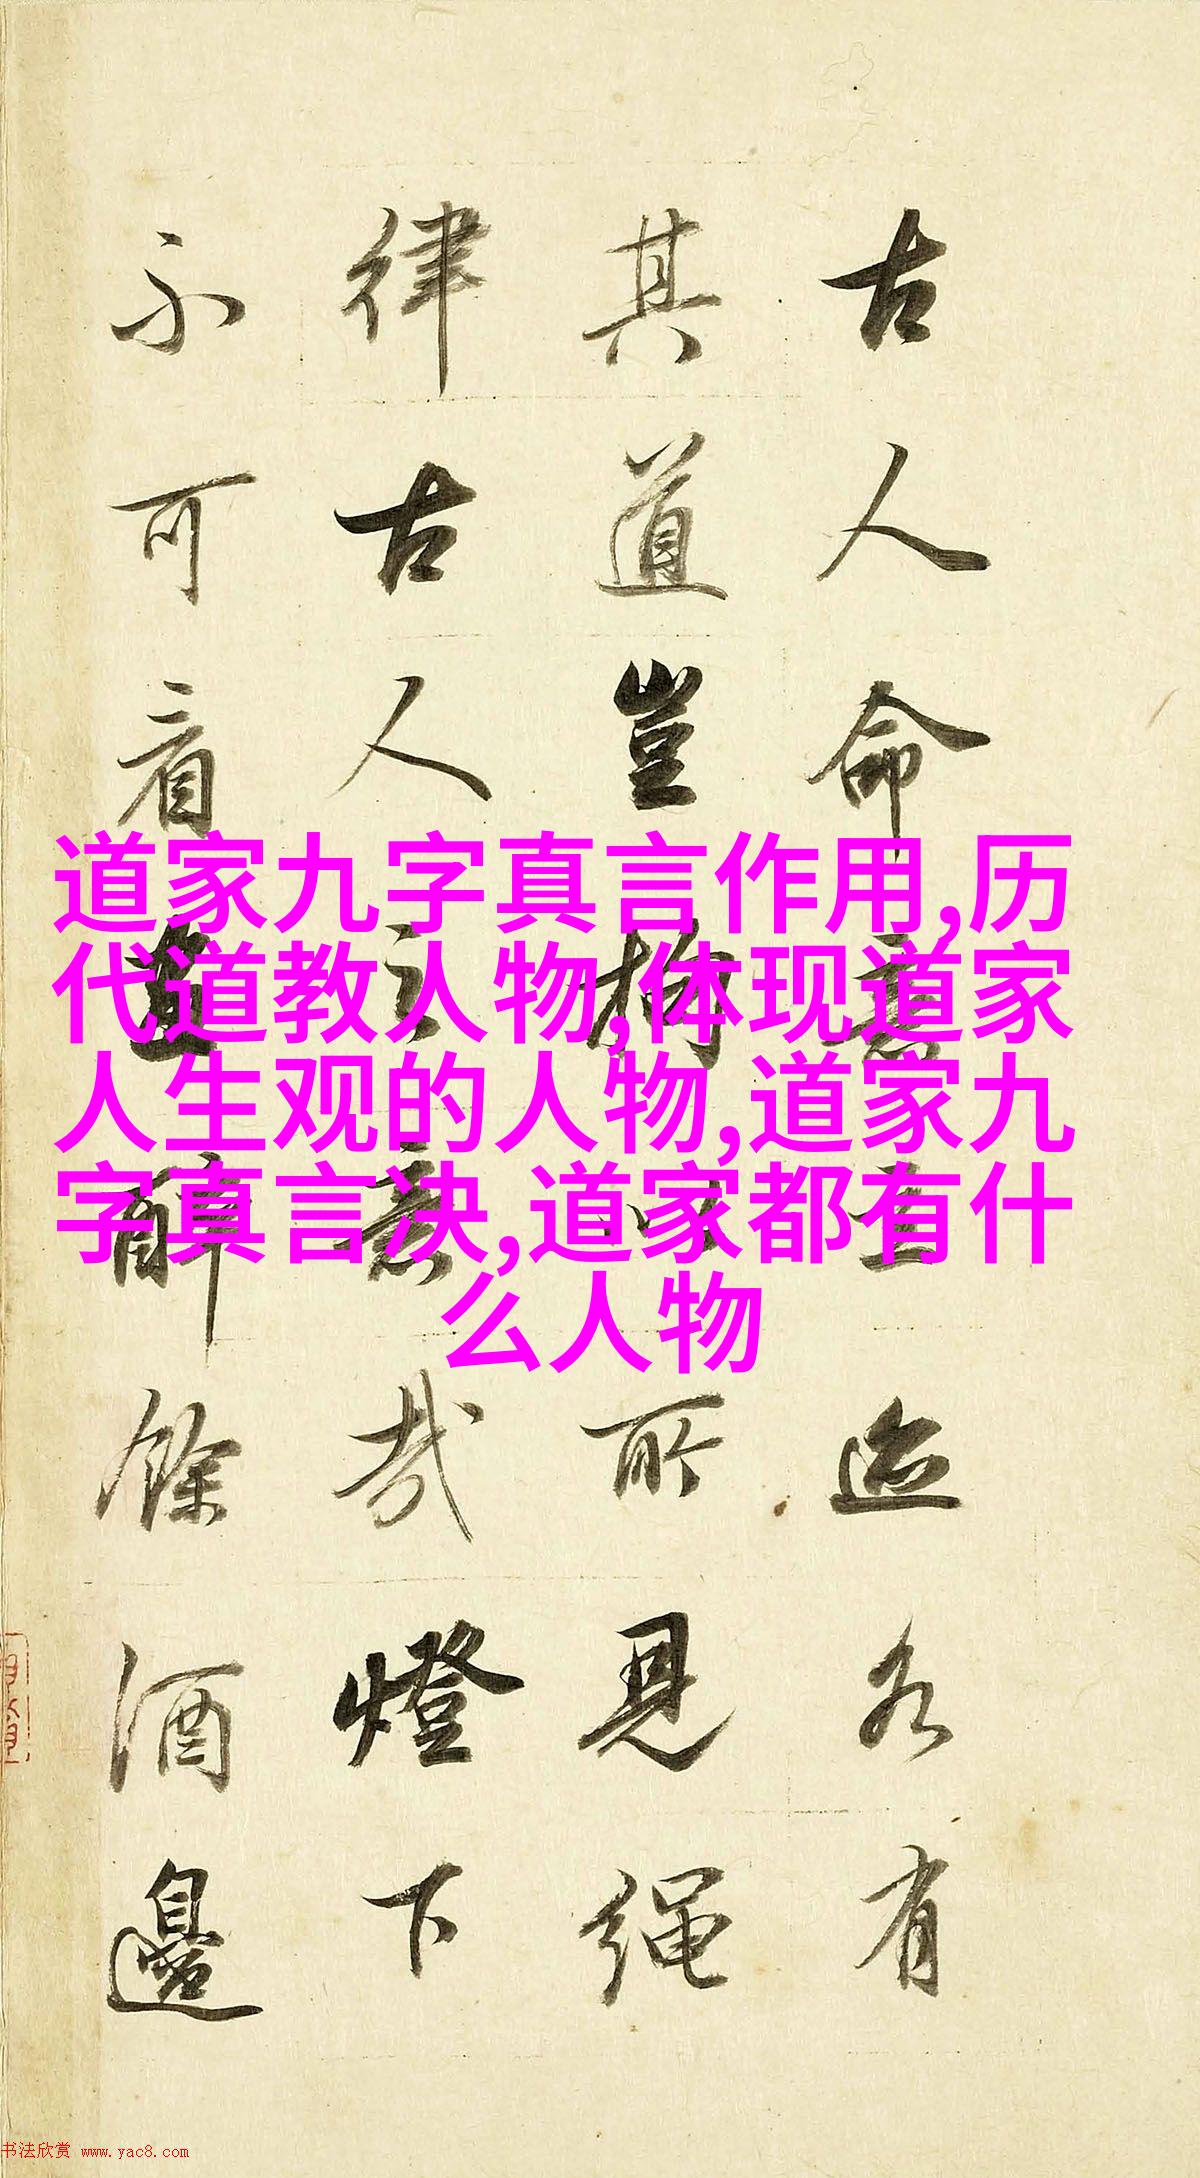 古人命意迹各有
其道豈拘以所見繩
律古人之意哉燈下
不可看且醉餘酒邊
道家九字真言作用,历
代道教人物,体现道家
人生观的人物,道家九
字真言决,道家都有什
么人物
书法欣赏 www.yac8.com